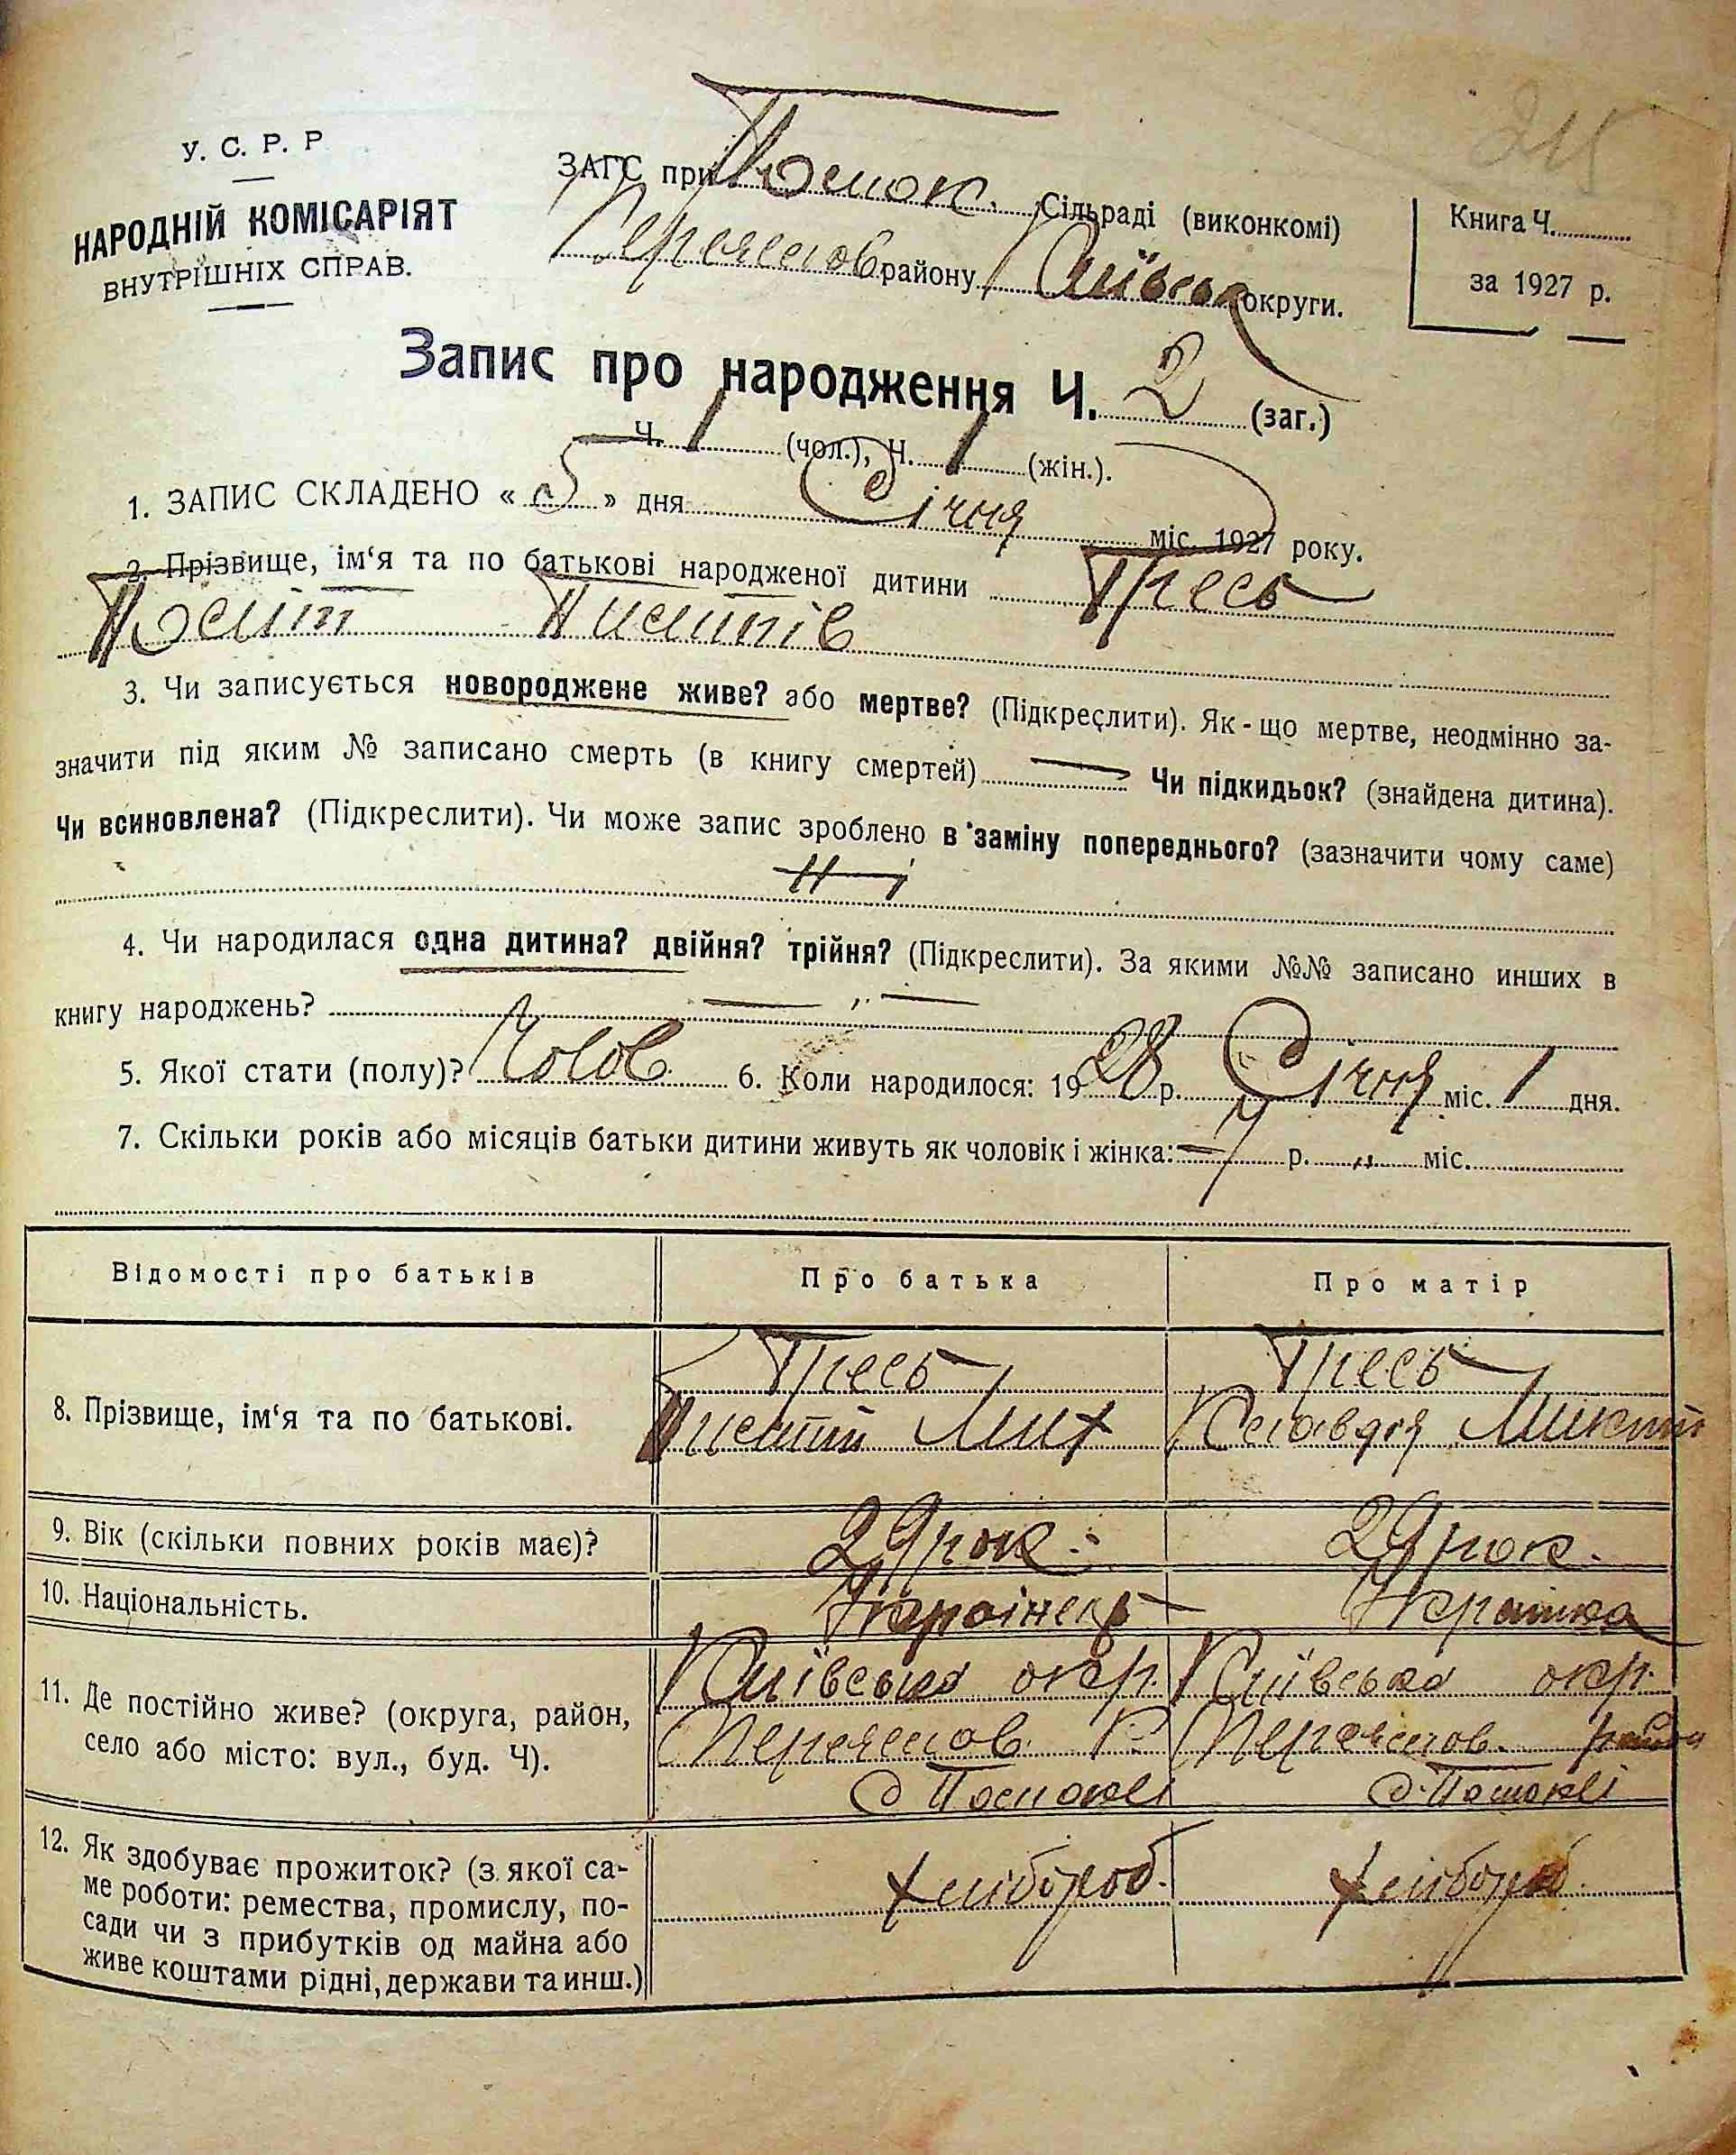 215
У. С. Р. Р
НАРОДНІЙ КОМІСАРІЯТ
ВНУТРІШНІХ СПРАВ.
ЗАГС при Помок. Сільраді (виконкомі)
Переяслов району Київськ округи.
Книга Ч.
за 1927 р.
Запис про народження Ч. 2 (заг.)
Ч. 1 (чол.), Ч. 1 (жін.).
1. ЗАПИС СКЛАДЕНО « 5 » дня Січня міс. 1927 року.
2. Прізвище, ім‘я та по батькові народженої дитини Тресь
3. Чи записується новороджене живе? або мертве? (Підкреслити). Як-що мертве, неодмінно за-
значити під яким № записано смерть (в книгу смертей) — Чи підкидьок? (знайдена дитина).
Чи всиновлена? (Підкреслити). Чи може запис зроблено в заміну попереднього? (зазначити чому саме)
Ні
4. Чи народилася одна дитина? двійня? трійня? (Підкреслити). За якими №№ записано инших в
книгу народжень? — „ —
5. Якої стати (полу)? Чолов 6. Коли народилося: 1928 р. Січня міс. 1 дня.
7. Скільки років або місяців батьки дитини живуть як чоловік і жінка: 7 р. „ міс.
Відомості про батьків Про батька Про матір
8. Прізвище, ім‘я та по батькові.
Тресь Тресь
Мих Клавдія Микит
9. Вік (скільки повних років має)? 29 рок. 29 рок.
10. Національність. Українець Українка
11. Де постійно живе? (округа, район,
село або місто: вул., буд. Ч).
Київська окр. Київська окр.
Переяслов. Р. Переяслов. район
12. Як здобуває прожиток? (з якої са-
ме роботи: ремества, промислу, по-
сади чи з прибутків од майна або
живе коштами рідні, держави та инш.)
хлібороб. хлібороб.